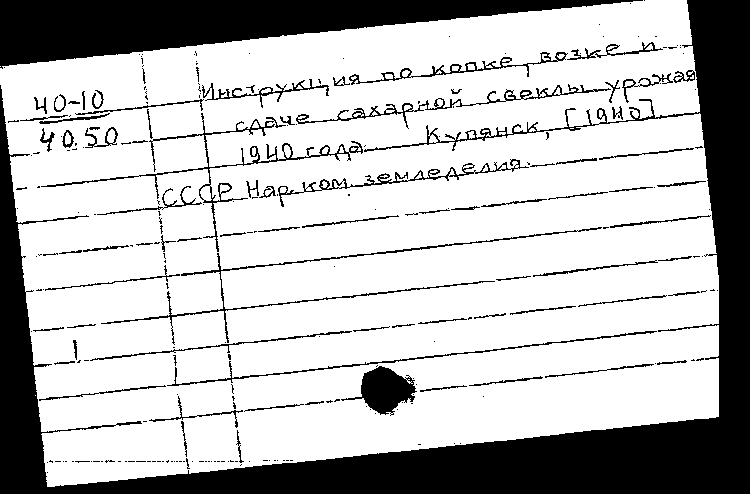 40-10
40.50
Инструкция по копке, возке и
сдаче сахарной свеклы урожая
1940 года. Купянск, [1940]
СССР Нар. ком. земледелия.
1